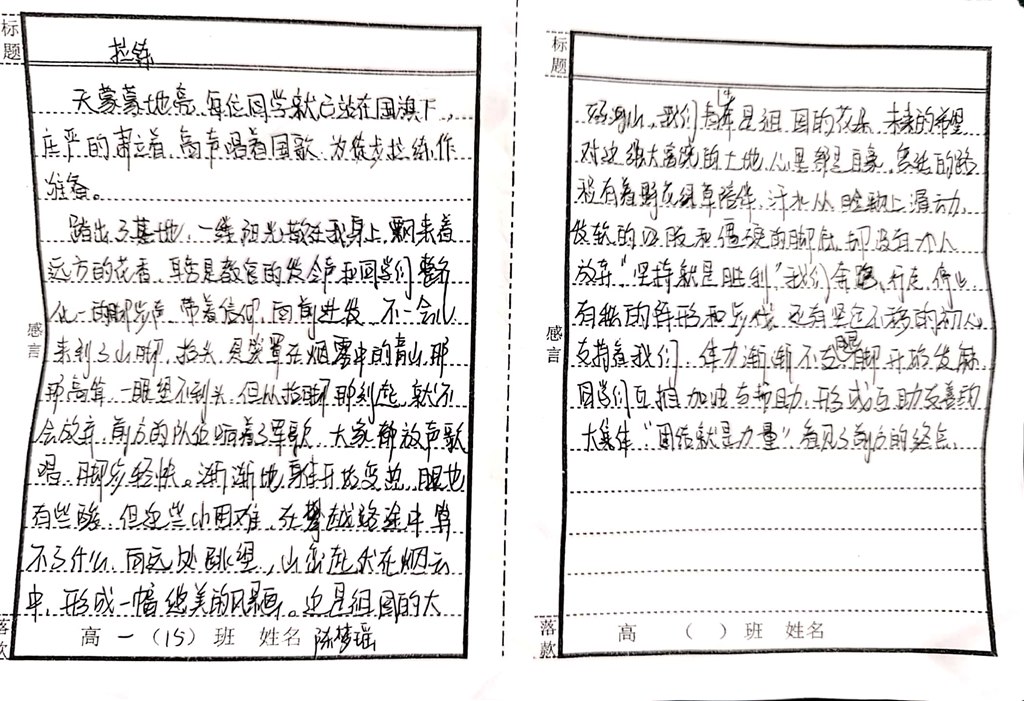 标题
拉练
天蒙蒙地亮,每位同学就已站在国旗下,
庄严的肃立着,高声唱着国歌,为徒步拉练作
准备。
踏出了基地,一缕阳光散在我身上,飘来着
远方的花香,耳旁是教官的发令声和同学们整齐
化一的脚步声,带着信仰,向前进发,不一会儿
来到了山脚,抬头,是笼罩在烟雾中的青山,那
那高耸,一眼望不到头,但从抬脚那刻起,就不
会放弃,前方的队伍响着了军歌,大家都放声歌
唱,脚步轻快。渐渐地,身体开始变热,腿也
有些酸,但这些小困难,在攀越路途中算
不了什么,向远处眺望,山峦起伏在烟云
中,形成一幅绝美的风景画。这是祖国的大
感言
落款
高 一 (15) 班 姓名 陈梦瑶
标题
好河山,我们青年是祖国的花朵,未来的希望
对这绝大富饶的土地,心里都是自豪,
没有着野花绿草陪伴,汗水从脸颊上滑动,
发软的双腿和僵硬的脚底,却没有才人
放弃"坚持就是胜利"我们奔跑、行走、停止
有秩的阵形和步伐,还有坚定不移的初心
支持着我们,体力渐渐不支,腿脚开始发麻
同学们互相加油与帮助,形成互助友善的
大集体,"团结就是力量",看见了前方的终点,
感言
落款
高 ( ) 班 姓名